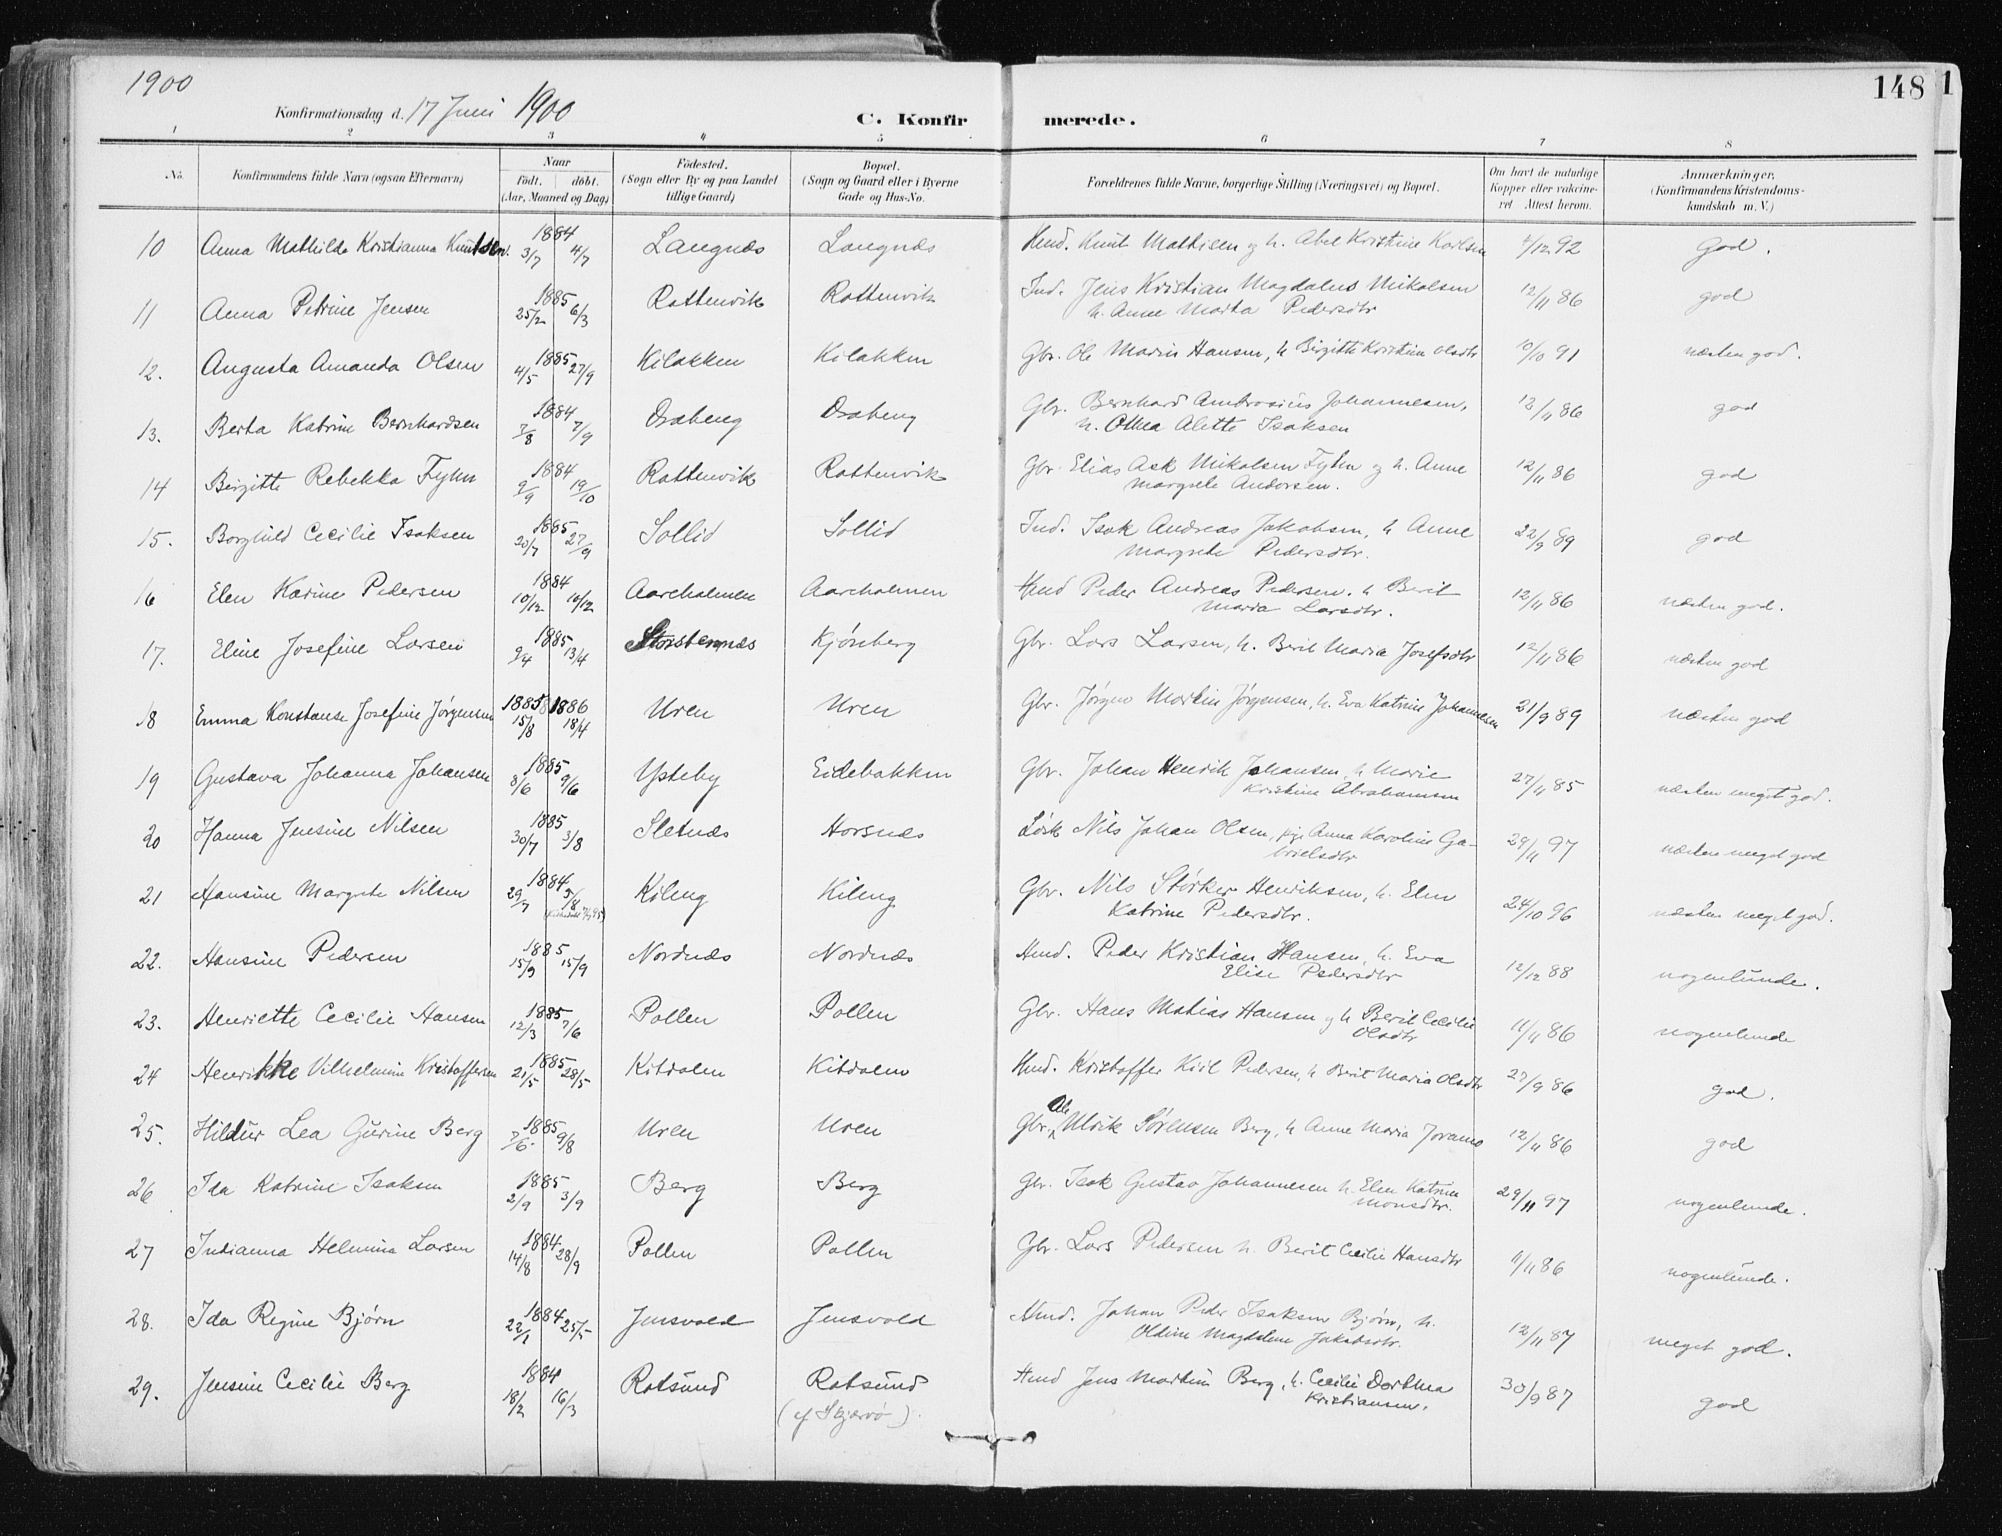 1900
148
Konfirmationsdag d. 17 Juni 1900
C. Konfirmerede.
1 2 3 4 5 6 7 8
No. Konfirmandens fulde Navn (ogsaa Efternavn) Naar født. døbt. (Aar, Maaned og Dag) Fødested. (Sogn eller By og paa Landet tillige Gaard) Bopæl. (Sogn og Gaard eller i Byerne Gade og Hus-No. Forældrenes fulde Navne, borgerlige Stilling (Næringsvei) og Bopæl. Om havt de naturlige Kopper eller vakcineret Attest herom. Anmærkninger. (Konfirmandens Kristendomskundskab m. V.)
10 Anna Mathilde Kristianna Knutsen. 1884 3/7 4/7 Langnæs Langnæs Hmd. Knut Mathisen og h. Abel Kristine Karlsen 4/12 92 God.
11 Anna Petrine Jensen 1885 25/2 6/3 Rottenvik Rottenvik Ind. Jens Kristian Magdalus Nikolsen
h. Anne Marta Pedersdtr 12/11 86 god
12. Augusta Amanda Olsen 1885 4/5 27/9 Kilakken Kilakken Gbr. Ole Marin Hansen, h Birgitte Kristine Olsdtr 10/10 91 næsten god.
13. Berta Katrine Bernhardsen 1884 7/8 7/9 Drabeng Drabeng Gbr. Bernhard Ambrosius Johannesen,
h. Othea Alette Isaksen 12/11 86 god
14 Birgitte Rebekka Fyhn 1884 9/9 19/10 Rottenvik Rottenvik Gbr. Elias Ask Nikolsen Fyhn og h. Anne
Margrete Andersen. 12/11 86 god
15. Borghild Cecilie Isaksen 1885 20/7 27/9 Sollid Sollid Ind. Isak Andreas Jakobsen, h Anne
Margrete Pedersdtr. 22/9 89 god
16 Elen Karine Pedersen 1884 10/12 16/12 Aareholmen Aareholmen Hmd Peder Andreas Pedersen. h Berit
Maria Larsdtr. 12/11 86 næsten god.
17. Eline Josefine Larsen 1885 9/4 13/4 Storstennæs Kjosberg Gbr. Lars Larsen, h. Berit Maria Josefsdtr 12/11 86 næsten god
18 Emma Konstanse Josefine Jørgensen 1885 15/8 1886 18/4 Uren Uren Gbr. Jørgen Martin Jørgensen, h. Eva Katrine Johannesen 21/9 89 næsten god
19 Gustava Johanna Johansen 1885 8/6 9/6 Ysteby Eidebakken Gbr. Johan Henrik Johansen, h Marie
Kristine Abrahamsen 27/11 85 næsten meget god.
20 Hanna Jensine Nilsen 1885 30/7 3/8 Sletnæs Horsnæs Løsk Nils Johan Olsen, pige Anna Karoline Ga-
brielsdtr 29/11 97 næsten meget god
21 Hansine Margrete Nilsen 1884 29/7 5/8 Kileng Kileng Gbr. Nils Størker Henriksen, h. Elen
Katrine Pedersdtr. 24/10 96 næsten meget god.
22. Hansine Pedersen 1885 15/9 15/9 Nordnæs Nordnæs Hmd. Peder Kristian Hansen, h. Eva
Elise Pedersdtr 12/12 88 nogenlunde.
23. Henriette Cecilie Hansen 1885 12/3 7/6 Pollen Pollen Gbr. Hans Matias Hansen og h Berit Cecilie
Olsdtr 11/11 86 nogenlunde
24 Henrikke Vilhelmine Kristoffersen 1885 21/5 28/5 Kitdalen Kitdalen Hmd. Kristoffer Kiil Pedersen, h Berit Maria Olsdtr 27/9 86 god.
25. Hildur Lea Gurine Berg 1885 7/6. 9/8 Uren Uren Gbr. Ole Ulrik Sørensen Berg, h Anne Maria Joramo 12/11 86 god
26 Ida Katrine Isaksen 1885 2/9 3/9 Berg Berg Gbr. Isak Gustav Johannesen h. Elen Katrine
Monsdtr. 29/11 97 nogenlunde.
27 Indianna Helmina Larsen 1884 14/8 28/9 Pollen Pollen Gbr. Lars Pedersen h. Berit Cecilie Hansdtr 11/11 86 nogenlunde.
28. Ida Regine Bjørn 1884 22/1 25/5 Jensvold Jensvold Hmd. Johan Peder Isaksen Bjørn, h.
Oldine Magdalene Jakobsdtr. 12/11 87 meget god.
29. Jensine Cecilie Berg 1884 18/2 16/3 Rotsund Rotsund Hmd Jens Martin Berg, h. Cecilie Dorthea
(af Skjærvø). Kristiansen. 30/9 87 god